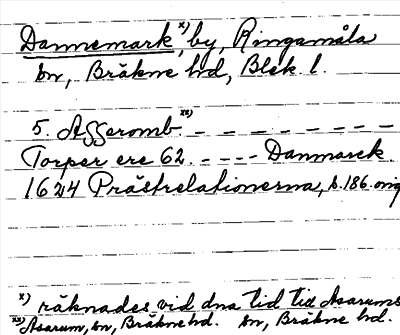 Dannemark x), by, Ringamåla
sn, Bräkne hd, Blek. l.
5. Asseromb. xx) - - - - - - - -
Torper ere 62. - - - - Danmarck
1624 Prästrelationerna, s. 186. orig
x) räknades vid dna tid till Asarums
xx) Asarum, sn, Bräkne hd. sn, Bräkne hd.